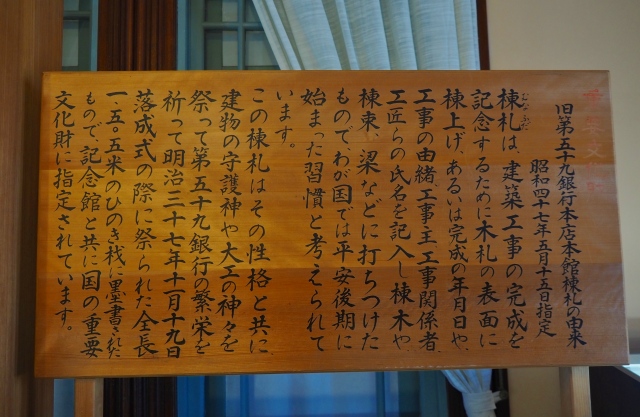 重要文化財
旧第五十九銀行本店本館棟札の由来
昭和四十七年五月十五日指定
むなふだ
棟札は、建築工事の完成を
記念するために木札の表面に
棟上げ、あるいは完成の年月日や、
工事の由緒、工事主、工事関係者、
工匠らの氏名を記入し棟木や、
棟束、梁などに打ちつけた
もので、わが国では平安後期に
始まった習慣と考えられて
います。
この棟札はその性格と共に、
建物の守護神や大工の神々を
祭って第五十九銀行の繁栄を
祈って明治三十七年十一月十九日
落成式の際に祭られた全長
一・五〇五米のひのき材に墨書された
もので、記念館と共に国の重要
文化財に指定されています。